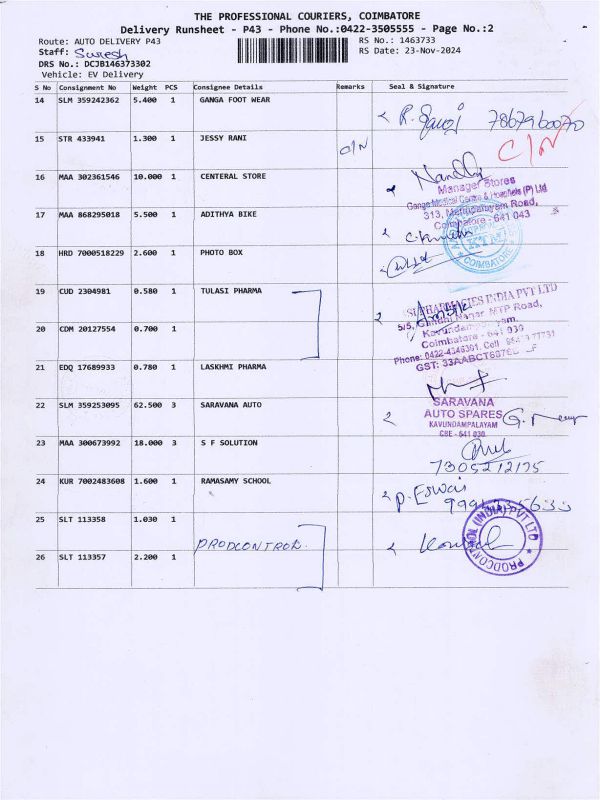 THE PROFESSIONAL COURIERS, COIMBATORE
Delivery Runsheet - P43 - Phone No.:0422-3505555 - Page No.:2
Route: AUTO DELIVERY P43 RS No.: 1463733
Staff: Suresh RS Date: 23-Nov-2024
DRS No.: DCJB146373302
Vehicle: EV Delivery
S No Consignment No Weight PCS Consignee Details Remarks Seal & Signature
14 SLM 359242362 5.400 1 GANGA FOOT WEAR
15 STR 433941 1.300 1 JESSY RANI O/N C/N
16 MAA 302361546 10.000 1 CENTERAL STORE
Manager Stores
Ganga Medical Centre & Hospitals (P) Ltd
313, Mettupalayam Road,
Coimbatore - 641 043
17 MAA 868295018 5.500 1 ADITHYA BIKE
KTM
COIMBATORE
18 HRD 7000518229 2.600 1 PHOTO BOX
19 CUD 2304981 0.580 1 TULASI PHARMA
PHARMACIES INDIA PVT LTD
MTP Road,
20 CDM 20127554 0.700 1
Coimbatore - 641 030
21 EDQ 17689933 0.780 1 LASKHMI PHARMA
22 SLM 359253095 62.500 3 SARAVANA AUTO
SARAVANA
AUTO SPARES
KAVUNDAMPALAYAM
CBE - 641 030
23 MAA 300673992 18.000 3 S F SOLUTION
7305212175
24 KUR 7002483608 1.600 1 RAMASAMY SCHOOL
P. Eswari
25 SLT 113358 1.030 1
PRODCONTROL.
26 SLT 113357 2.200 1
PRODCONTROL (INDIA) PVT LTD